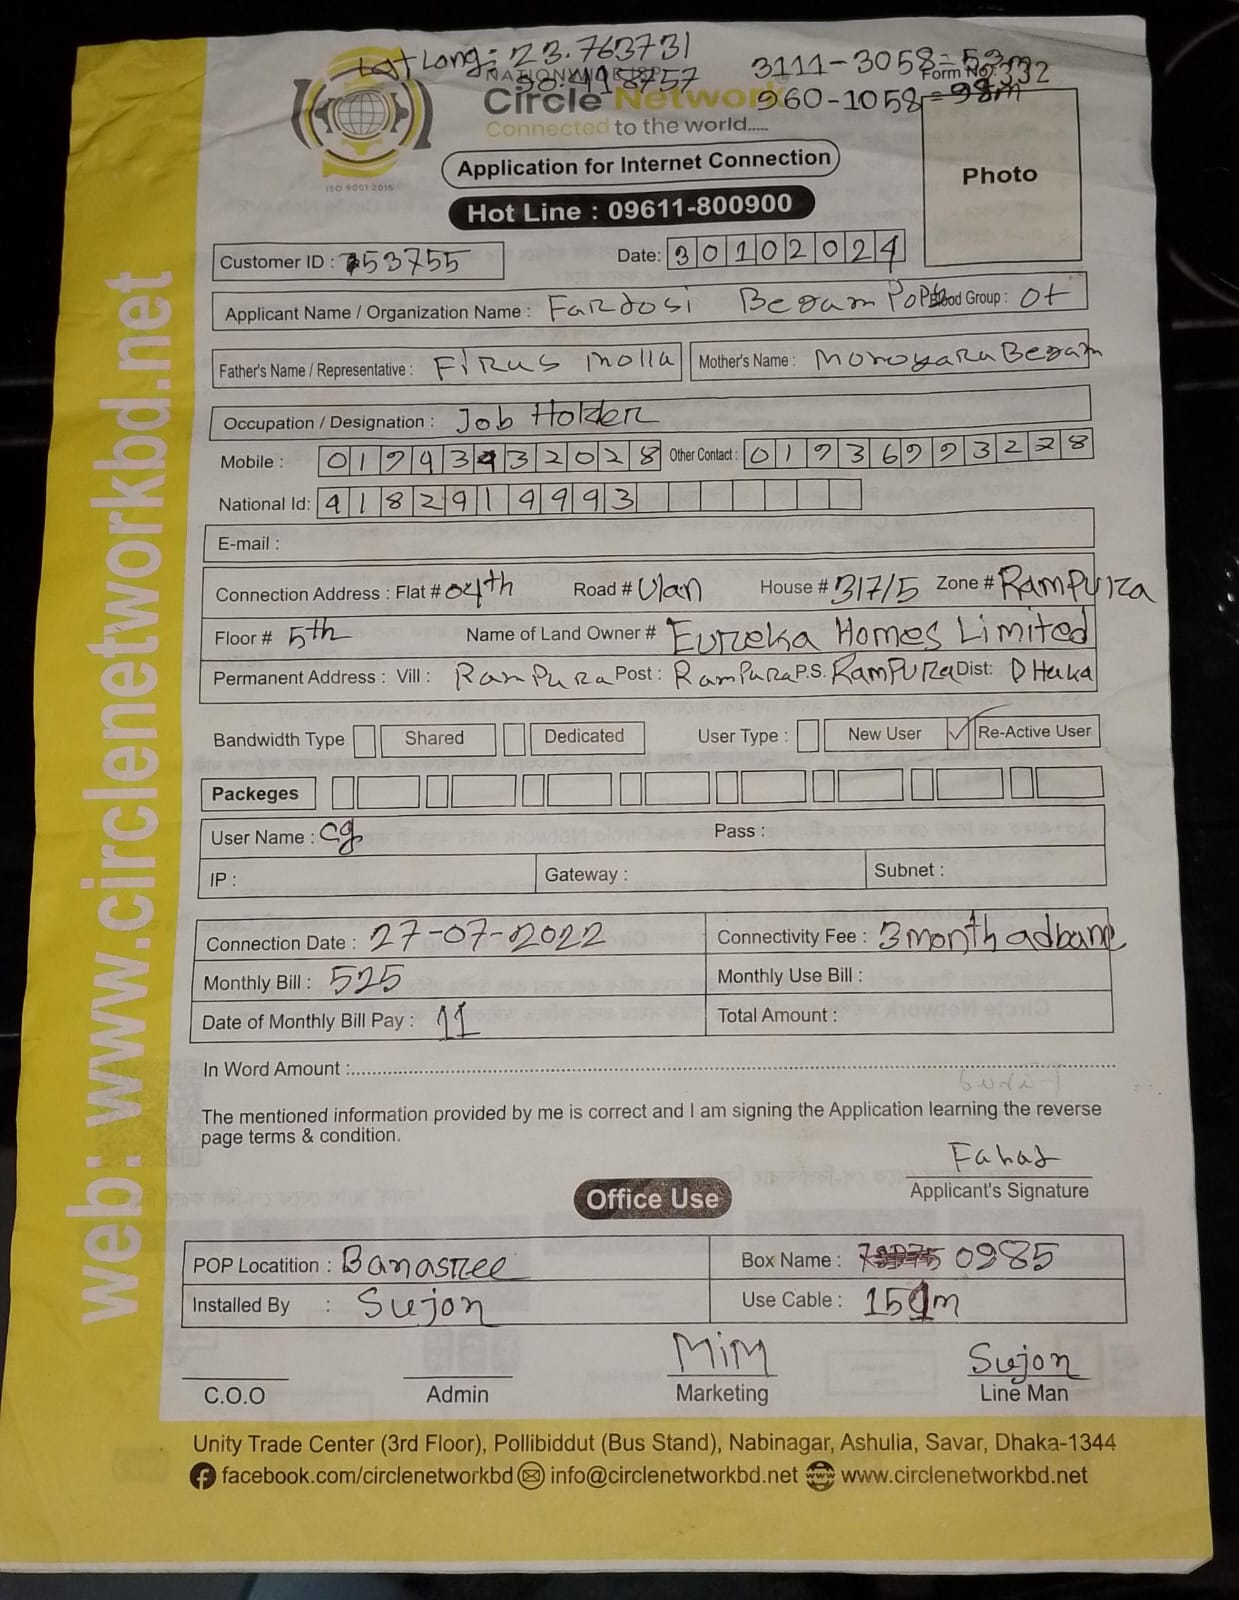 Lat Long: 23.763731
90.418757
3111-3058=53m
960-1058=98m
Form No: 332
Circle Network
Connected to the world.....
ISO 9001:2015
Application for Internet Connection
Photo
Hot Line : 09611-800900
Customer ID : 753755
Date: 30102024
Applicant Name / Organization Name : Fardosi Begam Popy Blood Group : O+
Father's Name / Representative : Firus molla Mother's Name : Monoyara Begam
Occupation / Designation : Job Holder
Mobile : 01794343 2028 Other Contact : 01736993228
National Id: 4182919993
E-mail :
Connection Address : Flat # 04th Road # Ulan House # 317/5 Zone # RamPura
Floor # 5th Name of Land Owner # Eureka Homes Limited
Permanent Address : Vill : RamPura Post : RamPura P.S. RamPura Dist: DHaka
Bandwidth Type Shared Dedicated User Type : New User Re-Active User
Packeges
User Name : cg Pass :
IP : Gateway : Subnet :
Connection Date : 27-07-2022 Connectivity Fee : 3 month adbanc
Monthly Bill : 525 Monthly Use Bill :
Date of Monthly Bill Pay : 11 Total Amount :
In Word Amount :
The mentioned information provided by me is correct and I am signing the Application learning the reverse
page terms & condition.
Fahad
Applicant's Signature
Office Use
POP Locatition : Banasree Box Name : 0985
Installed By : Sujon Use Cable : 151m
MiM Sujon
C.O.O Admin Marketing Line Man
Unity Trade Center (3rd Floor), Pollibiddut (Bus Stand), Nabinagar, Ashulia, Savar, Dhaka-1344
facebook.com/circlenetworkbd info@circlenetworkbd.net www.circlenetworkbd.net
web: www.circlenetworkbd.net